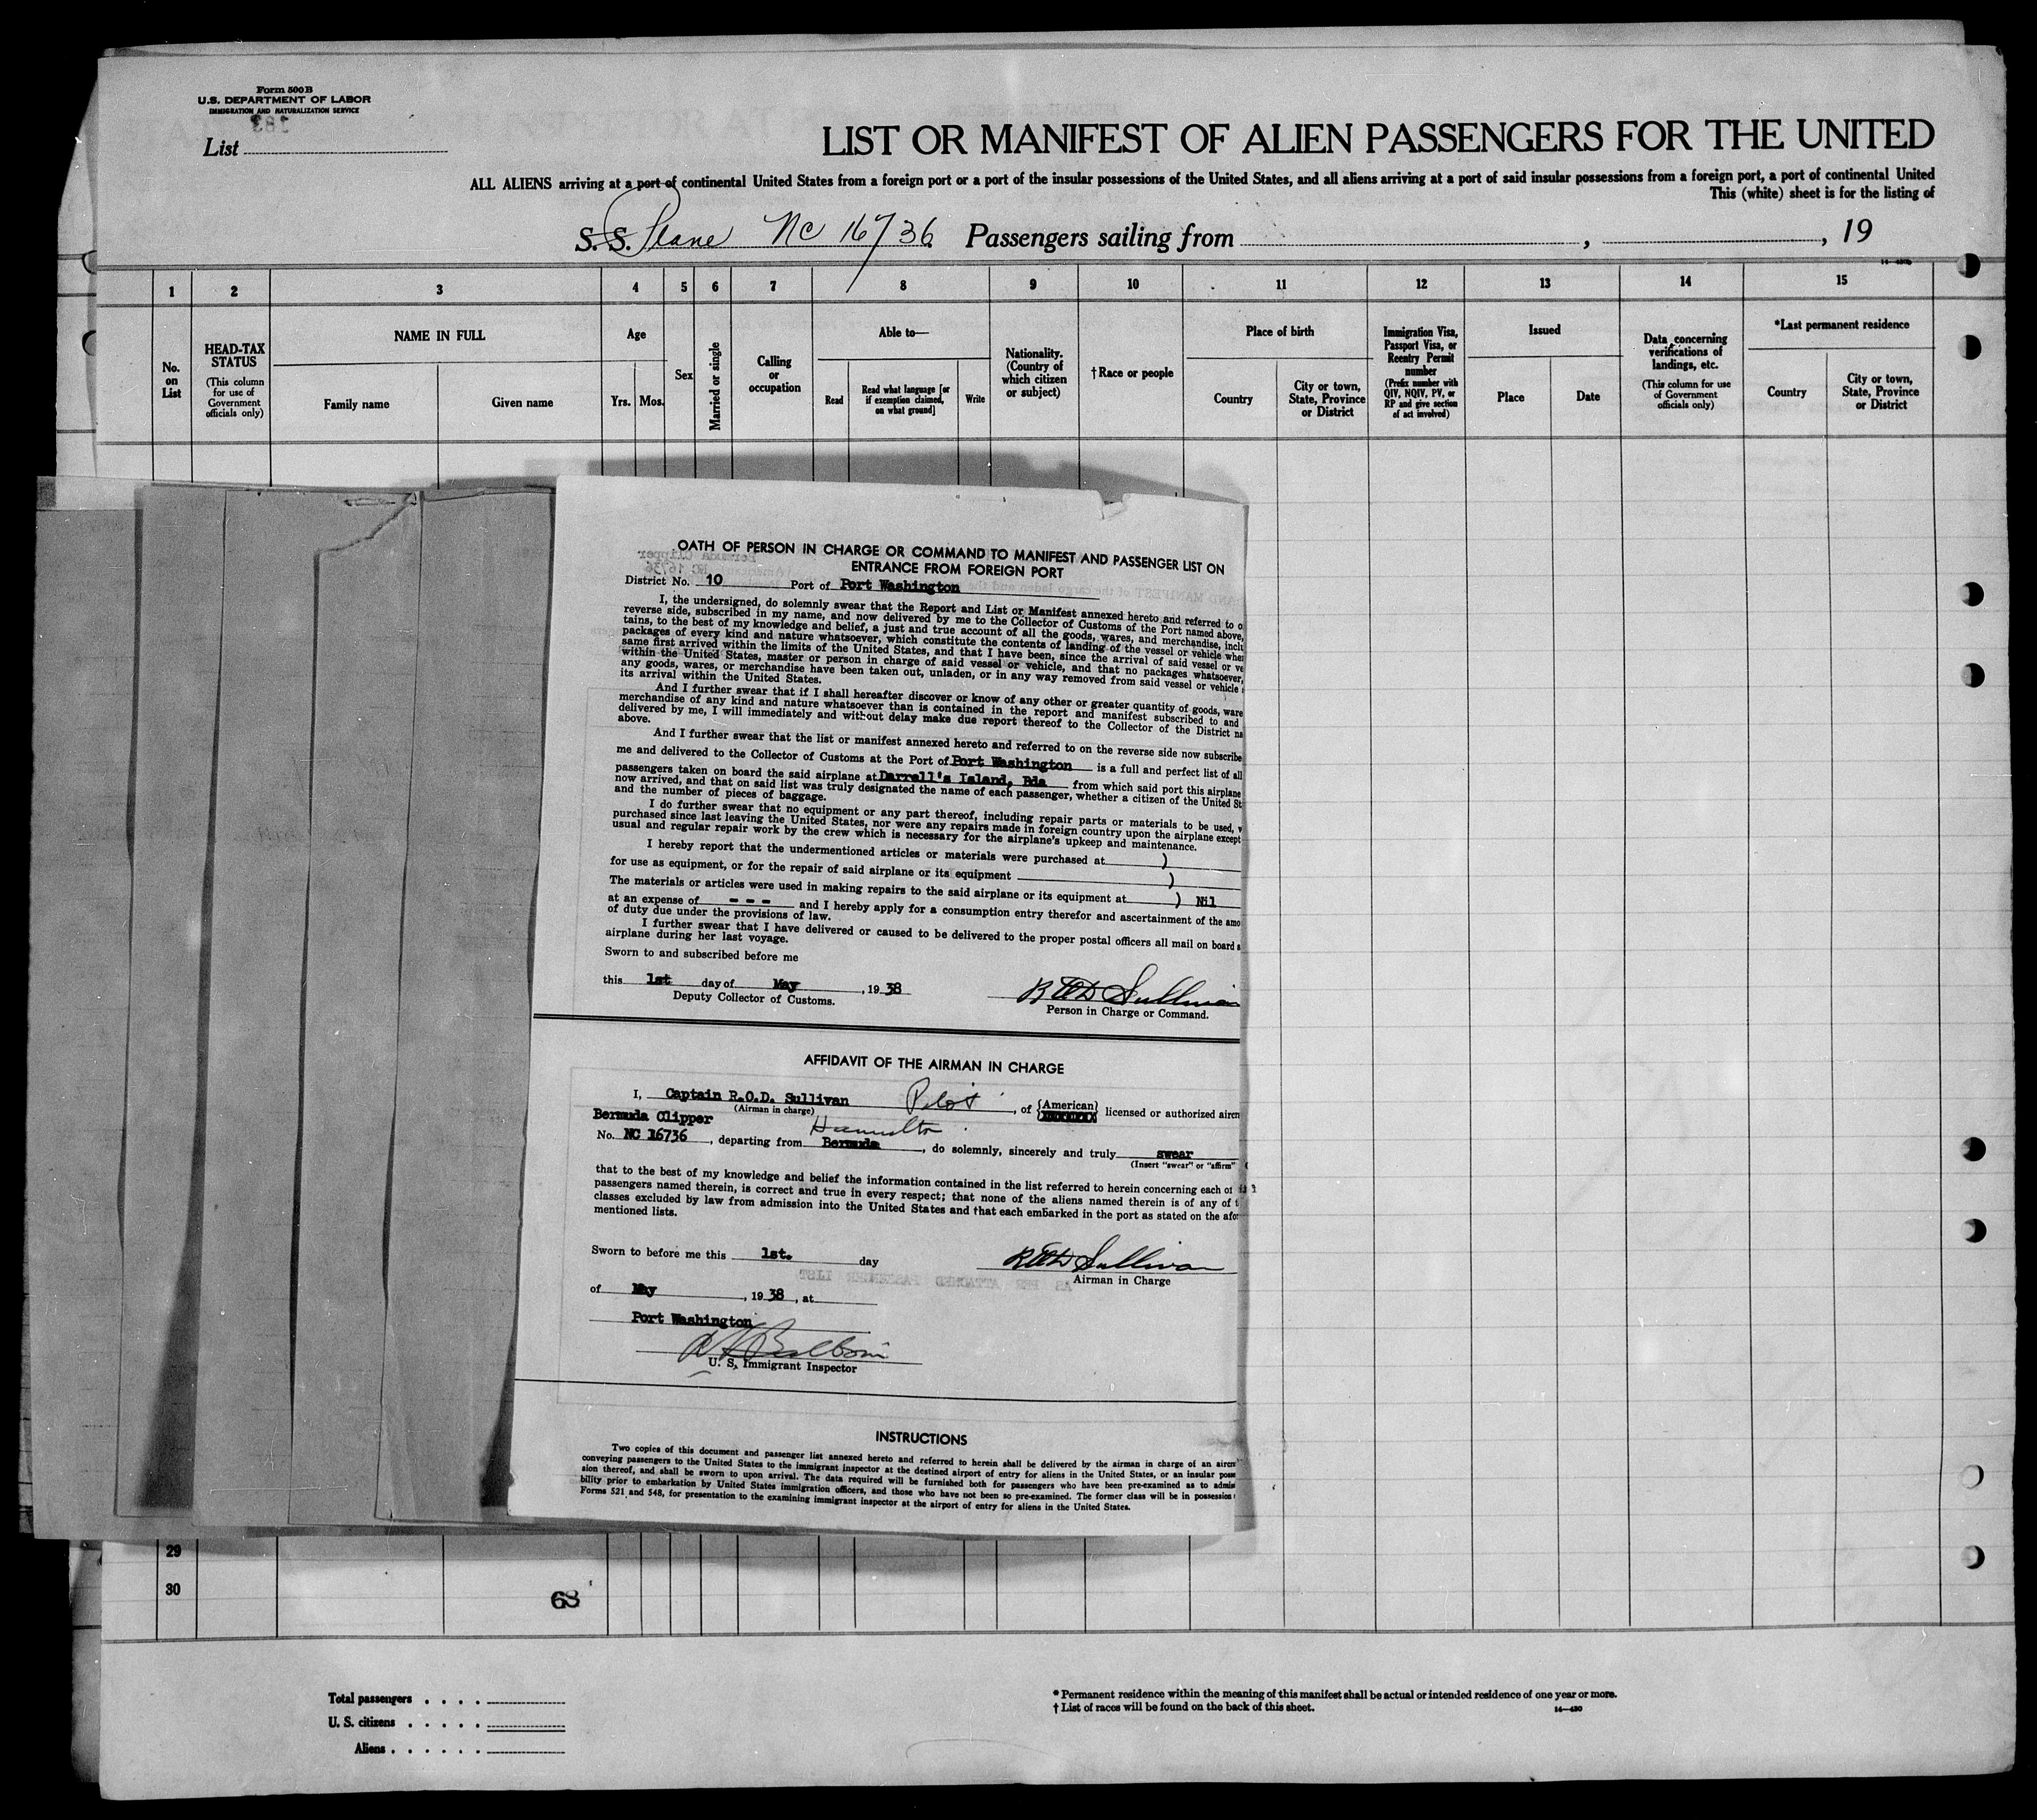 Form 500B
U.S. DEPARTMENT OF LABOR
IMMIGRATION AND NATURALIZATION SERVICE
List
LIST OR MANIFEST OF ALIEN PASSENGERS FOR THE UNITED
ALL ALIENS arriving at a port of continental United States from a foreign port or a port of the insular possessions of the United States, and all aliens arriving at a port of said insular possessions from a foreign port, a port of continental United
This (white) sheet is for the listing of
S.S. Plane NC 16736 Passengers sailing from , , 19
1 2 3 4 5 6 7 8 9 10 11 12 13 14 15
No. on List
HEAD-TAX STATUS
(This column for use of Government officials only)
NAME IN FULL
Family name
Given name
Age
Yrs. Mos.
Sex
Married or single
Calling or occupation
Able to—
Read
Read what language [or if exemption claimed, on what ground]
Write
Nationality. (Country of which citizen or subject)
†Race or people
Place of birth
Country
City or town, State, Province or District
Immigration Visa, Passport Visa, or Reentry Permit number
(Prefix number with QIV, NQIV, PV, or RP and give section of act involved)
Issued
Place
Date
Data concerning verifications of landings, etc.
(This column for use of Government officials only)
*Last permanent residence
Country
City or town, State, Province or District
OATH OF PERSON IN CHARGE OR COMMAND TO MANIFEST AND PASSENGER LIST ON
ENTRANCE FROM FOREIGN PORT
District No. 10 Port of Port Washington
I, the undersigned, do solemnly swear that the Report and List or Manifest annexed hereto and referred to o
reverse side, subscribed in my name, and now delivered by me to the Collector of Customs of the Port named above,
tains, to the best of my knowledge and belief, a just and true account of all the goods, wares, and merchandise, inclu
packages of every kind and nature whatsoever, which constitute the contents of landing of the vessel or vehicle whe
same first arrived within the limits of the United States, and that I have been, since the arrival of said vessel or ve
within the United States, master or person in charge of said vessel or vehicle, and that no packages whatsoever,
any goods, wares, or merchandise have been taken out, unladen, or in any way removed from said vessel or vehicle
its arrival within the United States.
And I further swear that if I shall hereafter discover or know of any other or greater quantity of goods, ware
merchandise of any kind and nature whatsoever than is contained in the report and manifest subscribed to and
delivered by me, I will immediately and without delay make due report thereof to the Collector of the District na
above.
And I further swear that the list or manifest annexed hereto and referred to on the reverse side now subscribe
me and delivered to the Collector of Customs at the Port of Port Washington is a full and perfect list of all
passengers taken on board the said airplane at Darrell's Island, Bda from which said port this airplane
now arrived, and that on said list was truly designated the name of each passenger, whether a citizen of the United St
and the number of pieces of baggage.
I do further swear that no equipment or any part thereof, including repair parts or materials to be used, w
purchased since last leaving the United States, nor were any repairs made in foreign country upon the airplane except
usual and regular repair work by the crew which is necessary for the airplane's upkeep and maintenance.
I hereby report that the undermentioned articles or materials were purchased at )
for use as equipment, or for the repair of said airplane or its equipment )
The materials or articles were used in making repairs to the said airplane or its equipment at ) Nil
at an expense of - - - and I hereby apply for a consumption entry therefor and ascertainment of the amo
of duty due under the provisions of law.
I further swear that I have delivered or caused to be delivered to the proper postal officers all mail on board
airplane during her last voyage.
Sworn to and subscribed before me
this 1st day of May , 19 38
Deputy Collector of Customs.
R.O.D. Sullivan
Person in Charge or Command.
AFFIDAVIT OF THE AIRMAN IN CHARGE
I, Captain R.O.D. Sullivan Pilot , of {American} licensed or authorized aircr
(Airman in charge)
Bermuda Clipper Hamilton
No. NC 16736 , departing from Bermuda , do solemnly, sincerely and truly swear
(Insert "swear" or "affirm"
that to the best of my knowledge and belief the information contained in the list referred to herein concerning each of
passengers named therein, is correct and true in every respect; that none of the aliens named therein is of any of t
classes excluded by law from admission into the United States and that each embarked in the port as stated on the afo
mentioned lists.
Sworn to before me this 1st. day
R.O.D. Sullivan
Airman in Charge
AS PER ATTACHED PASSENGER LIST
of May , 19 38 , at
Port Washington
U. S. Immigrant Inspector
INSTRUCTIONS
Two copies of this document and passenger list annexed hereto and referred to herein shall be delivered by the airman in charge of an aircr
conveying passengers to the United States to the immigrant inspector at the destined airport of entry for aliens in the United States, or an insular posse
sion thereof, and shall be sworn to upon arrival. The data required will be furnished both for passengers who have been pre-examined as to admis
bility prior to embarkation by United States immigration officers, and those who have not been so pre-examined. The former class will be in possession
Forms 521 and 548, for presentation to the examining immigrant inspector at the airport of entry for aliens in the United States.
29
30
63
Total passengers . . . .
U. S. citizens . . . . .
Aliens . . . . . .
* Permanent residence within the meaning of this manifest shall be actual or intended residence of one year or more.
† List of races will be found on the back of this sheet.
14—430